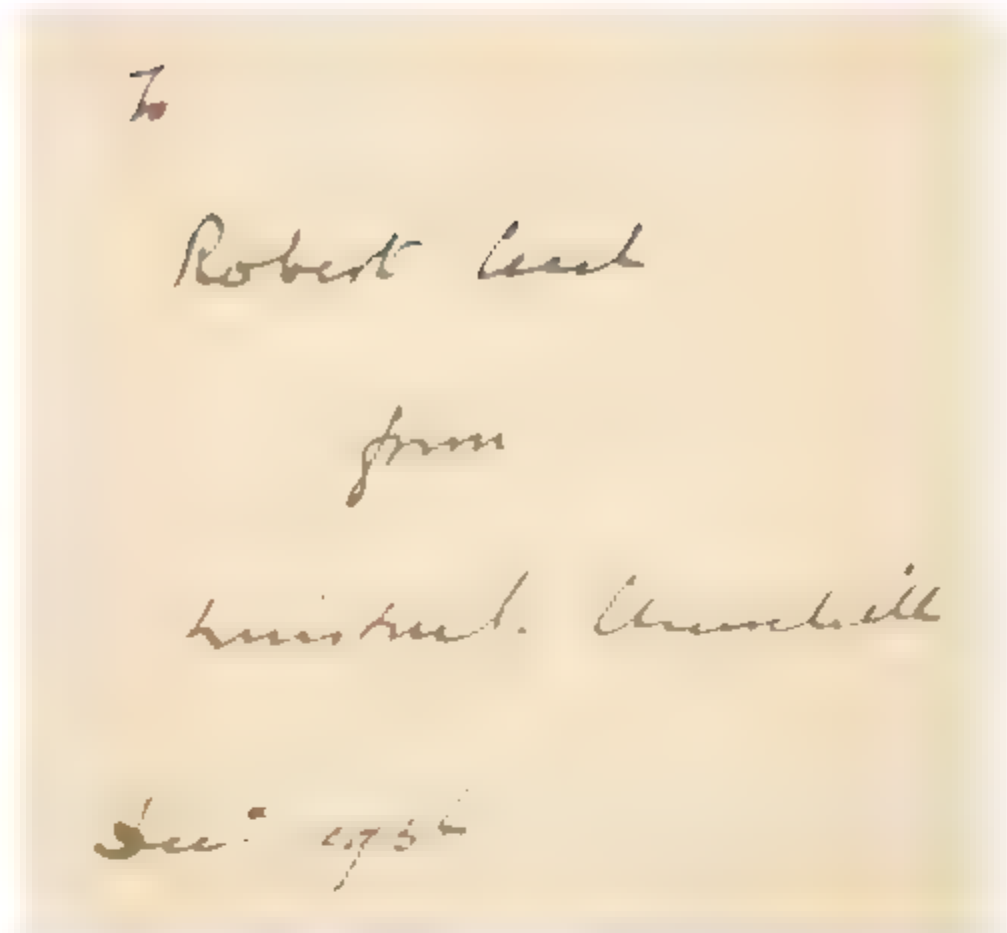 To
Robert Cecil
from
Winston S. Churchill
Dec.